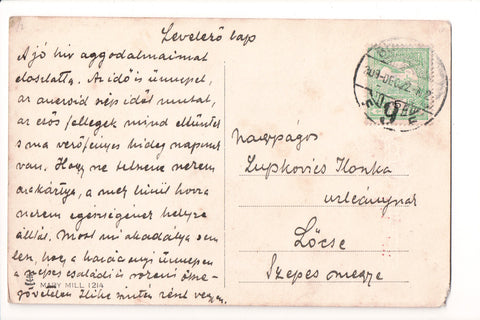 Levelező lap
A jó hir aggodalmaimat
eloszlatta. Az idő is ünnepel,
az aneroid szép időt mutat,
az erős fellegek mind eltüntek
s ma verőfényes hideg napunk
van. Hogy ne telnene nekem
a kártya, a mely hozza
nekem egészségének helyre
állítás. Most mi akadálya sem
lesz, hogy a karácsonyi ünnepen
a népes családi
Ilike mintén részt vegyen.
MARY MILL 1214
Nagyságos
Lupkovics Ilonka
urleánynak
Lőcse
Szepes megye
909 DEC 22